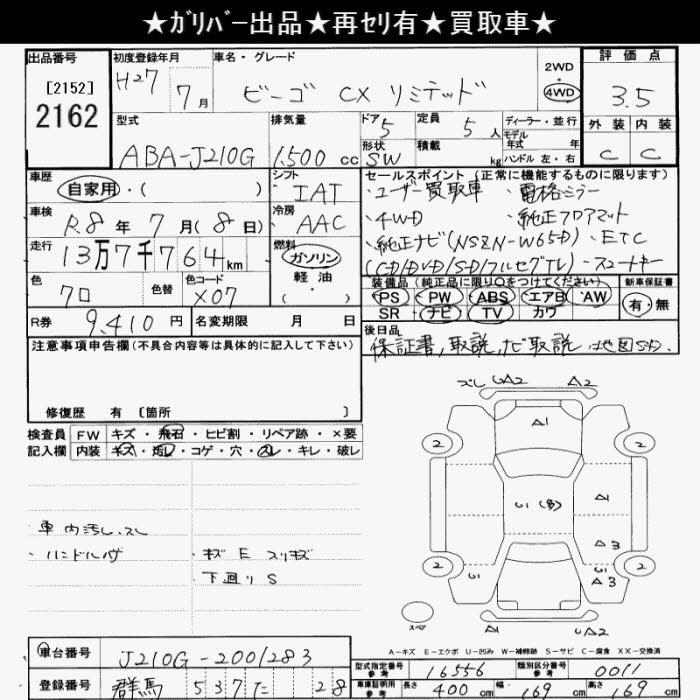 ★ｶﾞﾘﾊﾞｰ出品★再ｾﾘ有★買取車★
出品番号
[2152]
2162
初度登録年月
H27 7月
車名・グレード
ビーゴ CX リミテッド
2WD
・
4WD
評価点
3.5
外装 内装
C C
型式
ABA-J210G
排気量
1,500 cc
ドア
5
形状
SW
定員
5 人
積載
kg
ディーラー・並行
モデル
年式 年
ハンドル 左・右
車歴
自家用・( )
シフト
IAT
車検
R.8年7月(8日)
冷房
AAC
走行
13万7千764km
燃料
ガソリン
軽・油
( )
色
クロ
色替
色コード
X07
R券
9,410円
名変期限 月 日
セールスポイント(正常に機能するものに限ります)
・ユーザー買取車 ・電格ミラー
・4WD ・純正フロアマット
・純正ナビ(NSZN-W65D)・ETC
(CD/DVD/SD/フルセグTV)・スマートキー
装備品(純正品に限り○をつけてください)
PS・PW・ABS・エアB・AW
SR・ナビ・TV・カワ
新車保証書
有・無
後日品
保証書,取説,ナビ取説,地図SD.
注意事項申告欄(不具合内容等は具体的に記入して下さい)
修復歴 有 〔箇所 〕
検査員
記入欄
FW キズ・飛石・ヒビ割・リペア跡・×要
内装 キズ・汚レ・コゲ・穴・スレ・キレ・破レ
・車内汚し,スレ
・ハンドル
・キズ E スリキズ
下廻り S
ズレ UA2 A2
A1
2 2
U1(多)
A1
A3
2 2
U1 U1 A3
A1 UA2
スペア
A－キズ E－エクボ U－凹み W－補修跡 S－サビ C－腐食 XX－交換済
車台番号
J210G-2001283
登録番号
群馬 537 た 28
型式指定番号
参考
16556
類別区分番号
参考
0011
車庫証明用
参考
長さ 400cm
幅 169cm
高さ 169cm